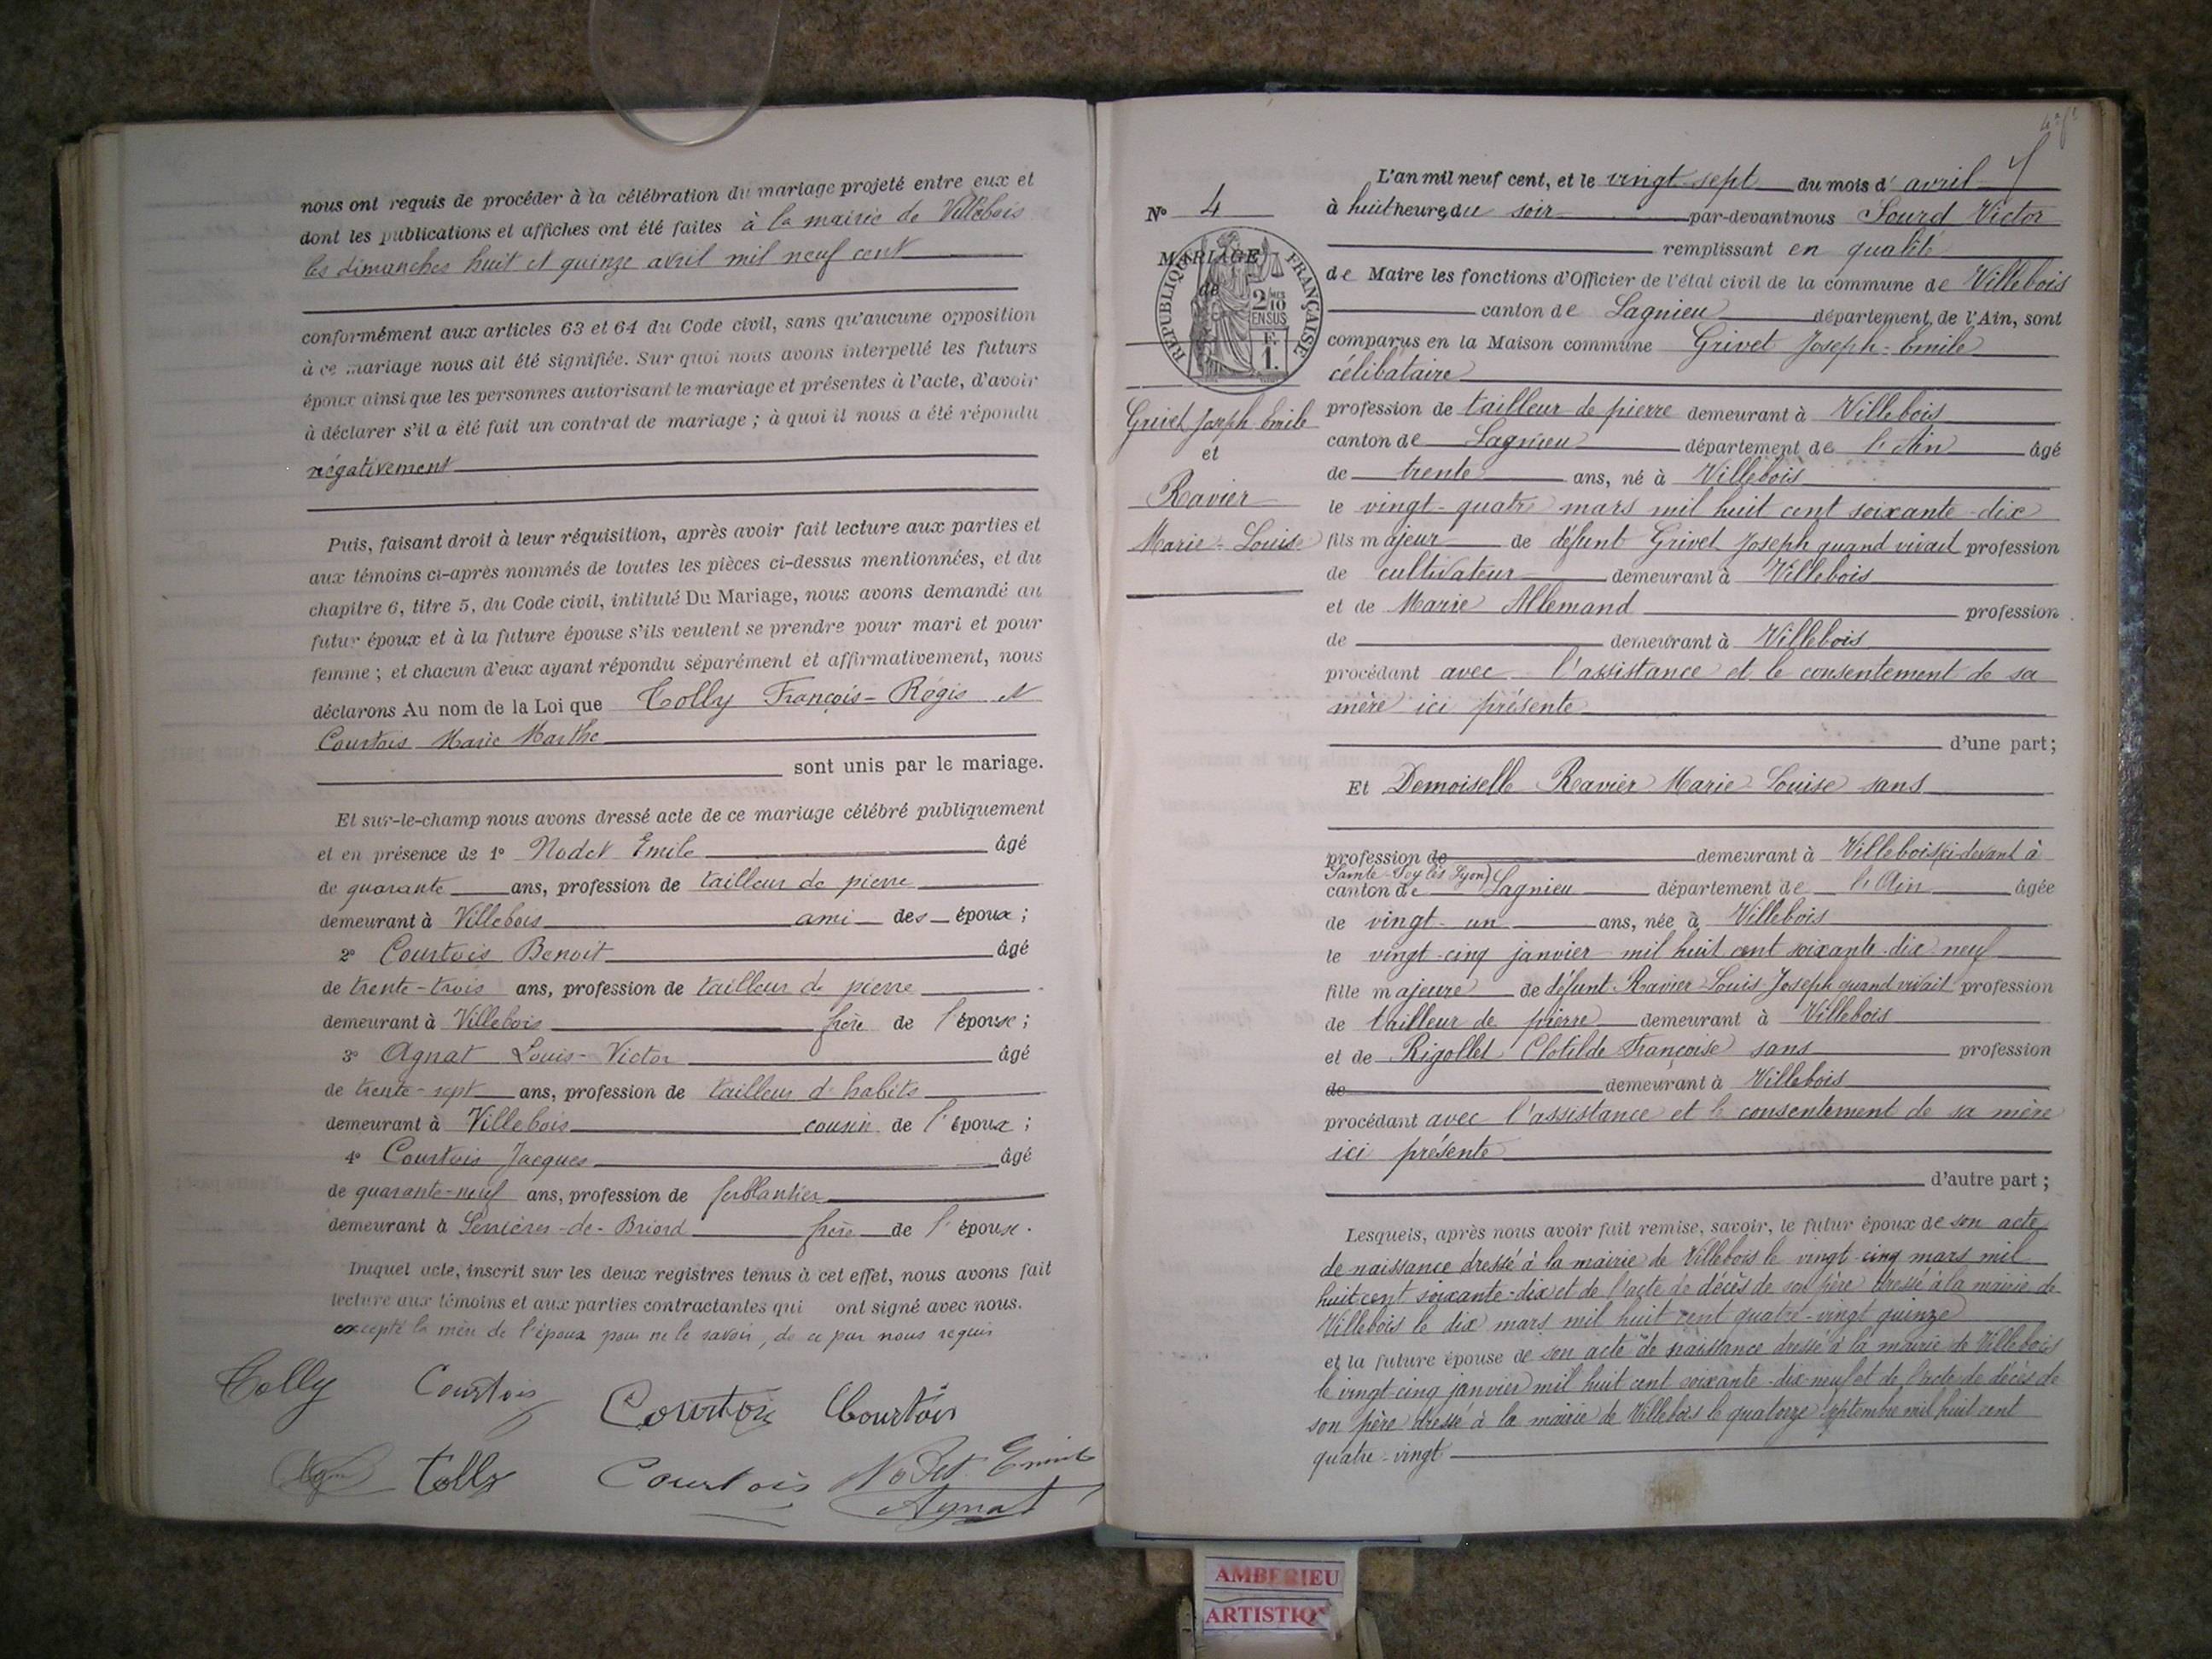 nous ont requis de procéder à la célébration du mariage projeté entre eux et
dont les publications et affiches ont été faites à la mairie de Villebois
les dimanches huit et quinze avril mil neuf cent
conformément aux articles 63 et 64 du Code civil, sans qu'aucune opposition
à ce mariage nous ait été signifiée. Sur quoi nous avons interpellé les futurs
époux ainsi que les personnes autorisant le mariage et présentes à l'acte, d'avoir
à déclarer s'il a été fait un contrat de mariage ; à quoi il nous a été répondu
négativement
Puis, faisant droit à leur réquisition, après avoir fait lecture aux parties et
aux témoins ci-après nommés de toutes les pièces ci-dessus mentionnées, et du
chapitre 6, titre 5, du Code civil, intitulé Du Mariage, nous avons demandé au
futur époux et à la future épouse s'ils veulent se prendre pour mari et pour
femme ; et chacun d'eux ayant répondu séparément et affirmativement, nous
déclarons Au nom de la Loi que Tolly François-Régis et
Courtois Marie Marthe
sont unis par le mariage.
Et sur-le-champ nous avons dressé acte de ce mariage célébré publiquement
et en présence de 1° Nodet Emile âgé
de quarante ans, profession de tailleur de pierre
demeurant à Villebois ami des époux ;
2° Courtois Benoit âgé
de trente-trois ans, profession de tailleur de pierre
demeurant à Villebois frère de l'épouse ;
3° Agnat Louis-Victor âgé
de trente-sept ans, profession de tailleur d'habits
demeurant à Villebois cousin de l'époux ;
4° Courtois Jacques âgé
de quarante-neuf ans, profession de ferblantier
demeurant à Serrières-de-Briord frère de l'épouse.
Duquel acte, inscrit sur les deux registres tenus à cet effet, nous avons fait
lecture aux témoins et aux parties contractantes qui ont signé avec nous.
excepté la mère de l'époux pour ne le savoir, de ce par nous requis
Tolly Courtois Courtois Courtois
Tolly Courtois Nodet Emile
Agnat
N° 4
MARIAGE
de
RÉPUBLIQUE FRANÇAISE
2/10
EN SUS
F.
1.
Grivet Joseph Emile
et
Ravier
Marie-Louise
L'an mil neuf cent, et le vingt-sept du mois d'avril
à huit heures du soir par-devant nous Sourd Victor
remplissant en qualité
de Maire les fonctions d'Officier de l'état civil de la commune de Villebois
canton de Lagnieu département de l'Ain, sont
comparus en la Maison commune Grivet Joseph-Emile
célibataire
profession de tailleur de pierre demeurant à Villebois
canton de Lagnieu département de l'Ain âgé
de trente ans, né à Villebois
le vingt-quatre mars mil huit cent soixante-dix
fils majeur de défunt Grivet Joseph quand vivait profession
de cultivateur demeurant à Villebois
et de Marie Allemand profession
de demeurant à Villebois
procédant avec l'assistance et le consentement de sa
mère ici présente
d'une part ;
Et Demoiselle Ravier Marie Louise sans
profession de demeurant à Villebois (ci-devant à
Sainte-Foy lès Lyon)
canton de Lagnieu département de l'Ain âgée
de vingt-un ans, née à Villebois
le vingt-cinq janvier mil huit cent soixante-dix neuf
fille majeure de défunt Ravier Louis Joseph quand vivait profession
de tailleur de pierre demeurant à Villebois
et de Rigollet Clotilde Françoise sans profession
de demeurant à Villebois
procédant avec l'assistance et le consentement de sa mère
ici présente
d'autre part ;
Lesquels, après nous avoir fait remise, savoir, le futur époux de son acte
de naissance dressé à la mairie de Villebois le vingt-cinq mars mil
huit cent soixante-dix et de l'acte de décès de son père dressé à la mairie de
Villebois le dix mars mil huit cent quatre-vingt quinze
et la future épouse de son acte de naissance dressé à la mairie de Villebois
le vingt-cinq janvier mil huit cent soixante-dix-neuf et de l'acte de décès de
son père dressé à la mairie de Villebois le quatorze septembre mil huit cent
quatre-vingt
AMBERIEU
ARTISTIQ